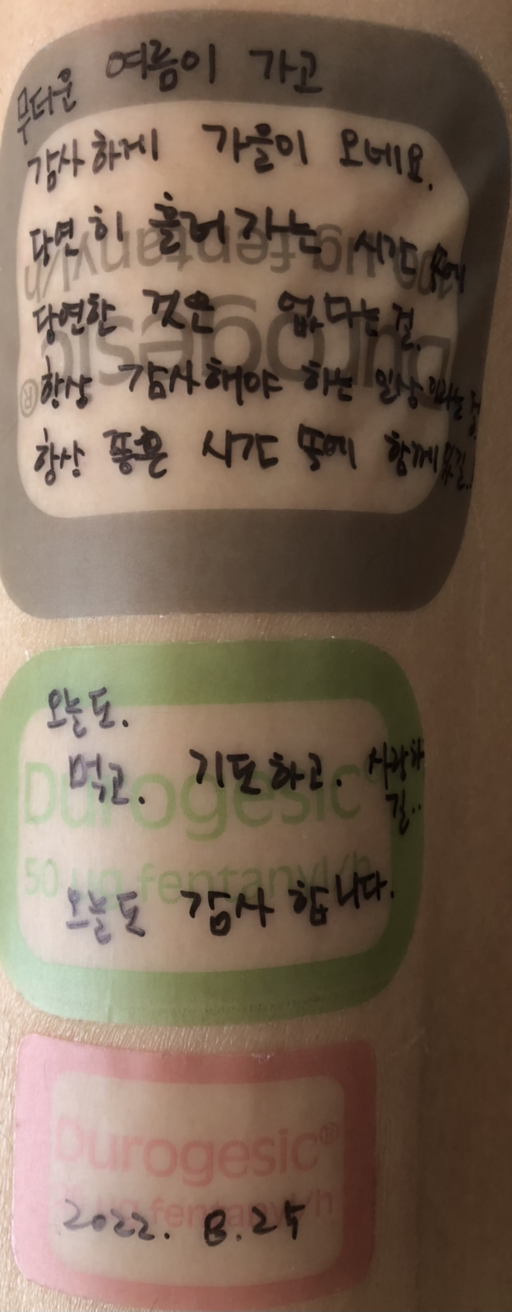 무더운 여름이 가고
감사하게 가을이 오네요.
당연히 흘러가는 시간 속에
당연한 것은 없다는걸.
항상 감사해야 하는 일상이라는 걸
항상 좋은 시간 속에 함께 있길..
100 µg fentanyl/h
Durogesic®
오늘도.
먹고. 기도하고. 사랑하
길..
Durogesic®
50 µg fentanyl/h
오늘도 감사합니다.
Durogesic®
µg fentanyl/h
2022. 8.25